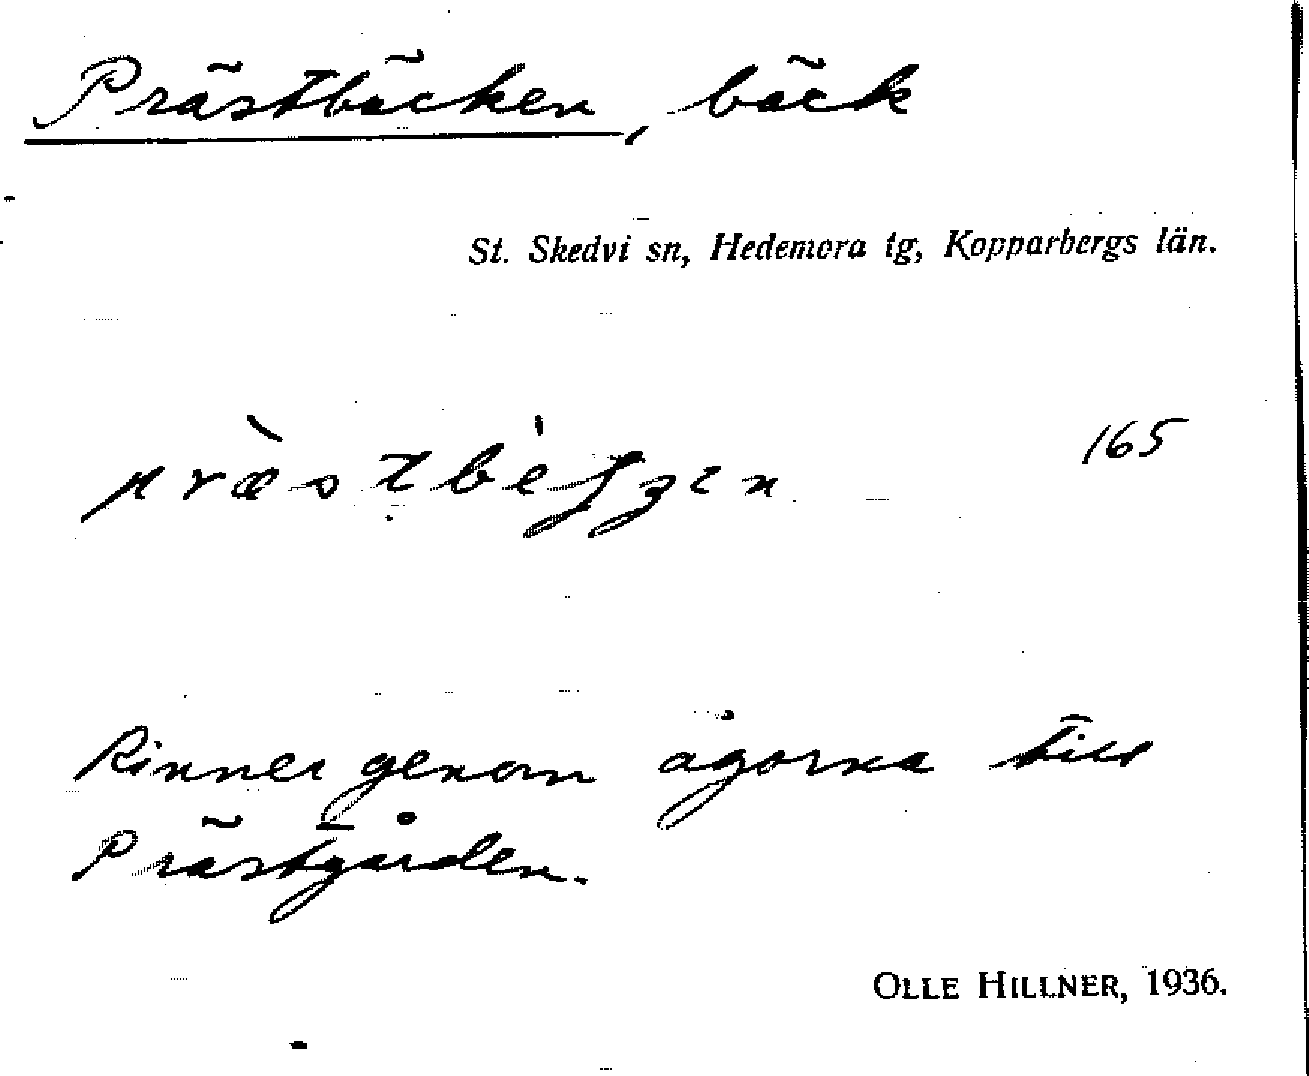 Prästbäcken, bäck
St. Skedvi sn, Hedemora tg, Kopparbergs län.
165
Rinner genom ägorna till
Prästgården.
OLLE HILLNER, 1936.